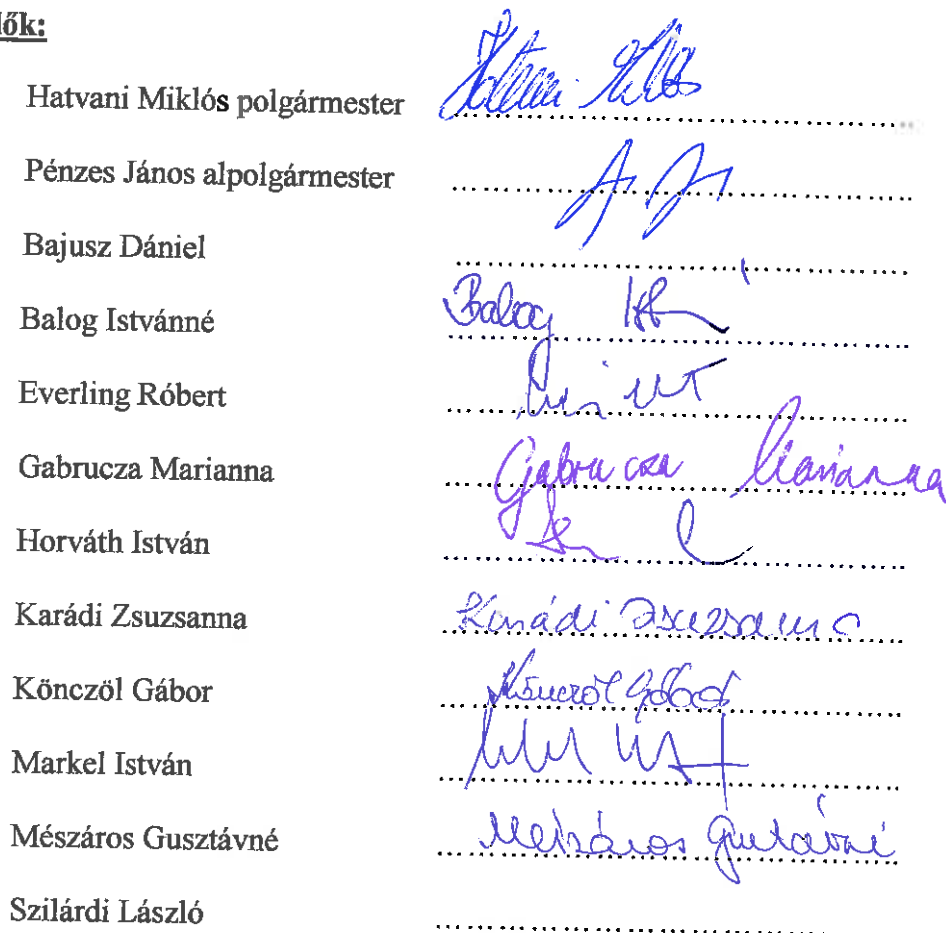 lők:
Hatvani Miklós polgármester
Pénzes János alpolgármester
Bajusz Dániel
Balog Istvánné Balog
Everling Róbert
Gabrucza Marianna Gabrucza Marianna
Horváth István
Karádi Zsuzsanna Karádi Zsuzsanna
Könczöl Gábor Könczöl Gábor
Markel István
Mészáros Gusztávné Mészáros Gusztávné
Szilárdi László